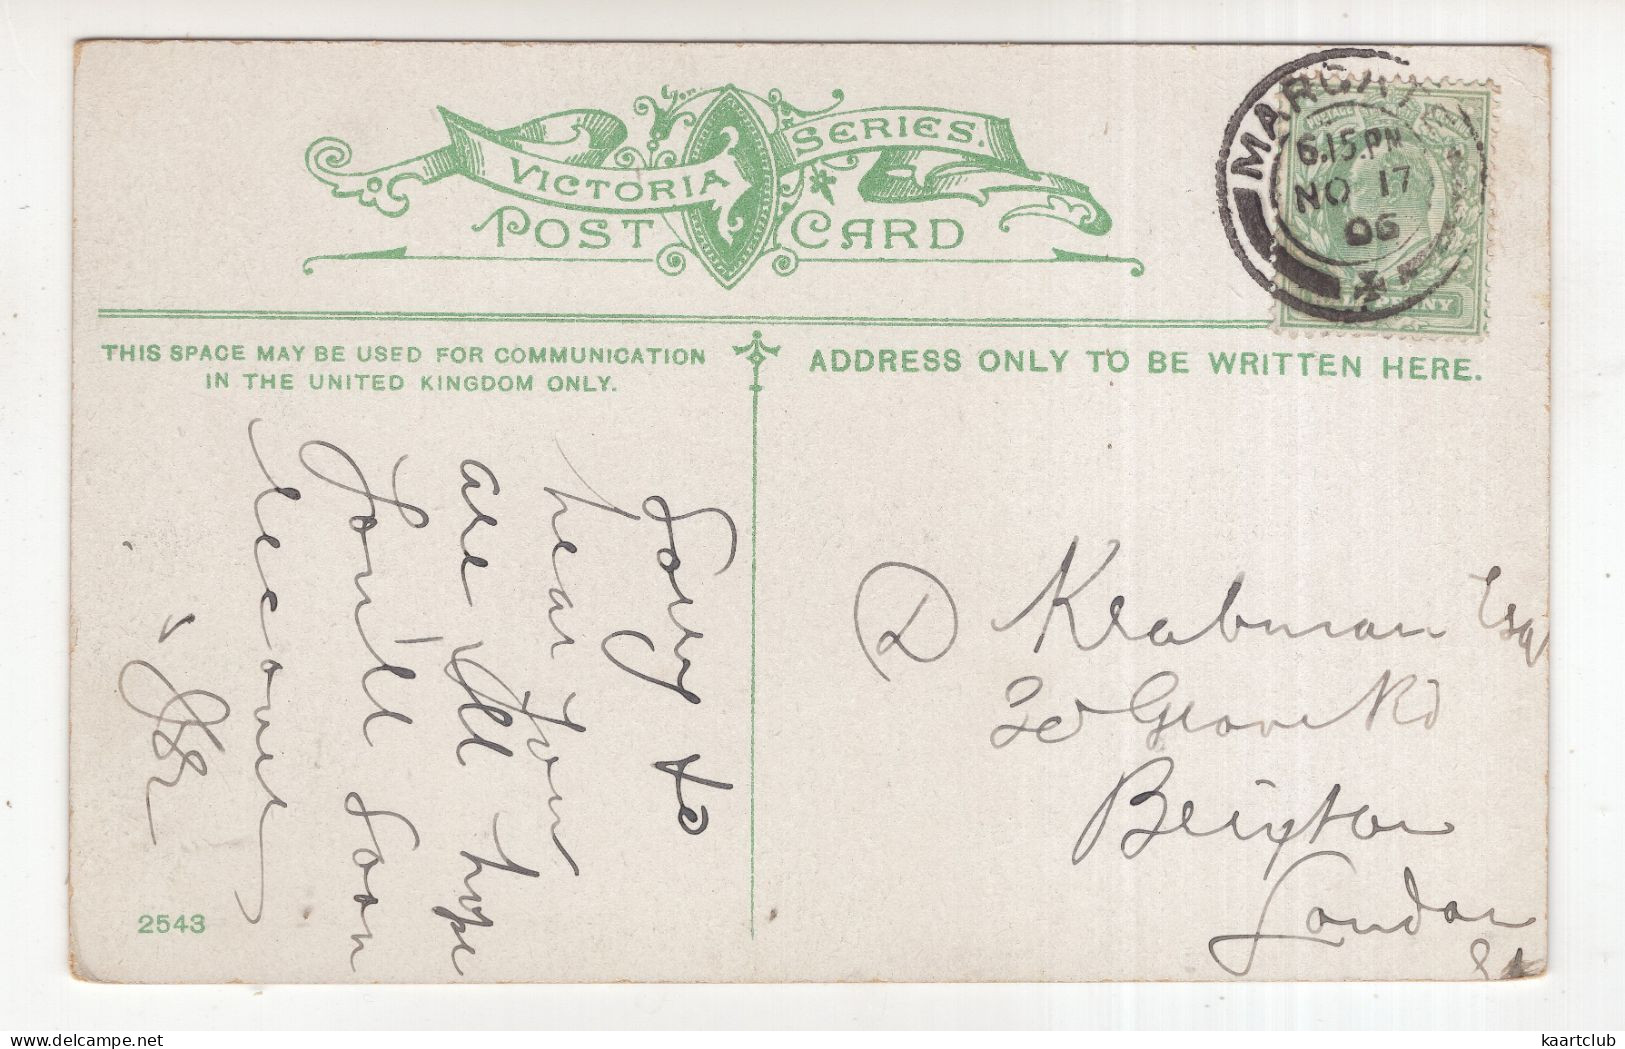 VICTORIA SERIES.
POST CARD
MARGATE
6.15.PM
NO 17
06
HALFPENNY
THIS SPACE MAY BE USED FOR COMMUNICATION
IN THE UNITED KINGDOM ONLY.
ADDRESS ONLY TO BE WRITTEN HERE.
Sorry to
hear you
are ill hope
you'll soon
recover
D Krabman Esq
Grove Rd
Brixton
London
2543
kaartclub